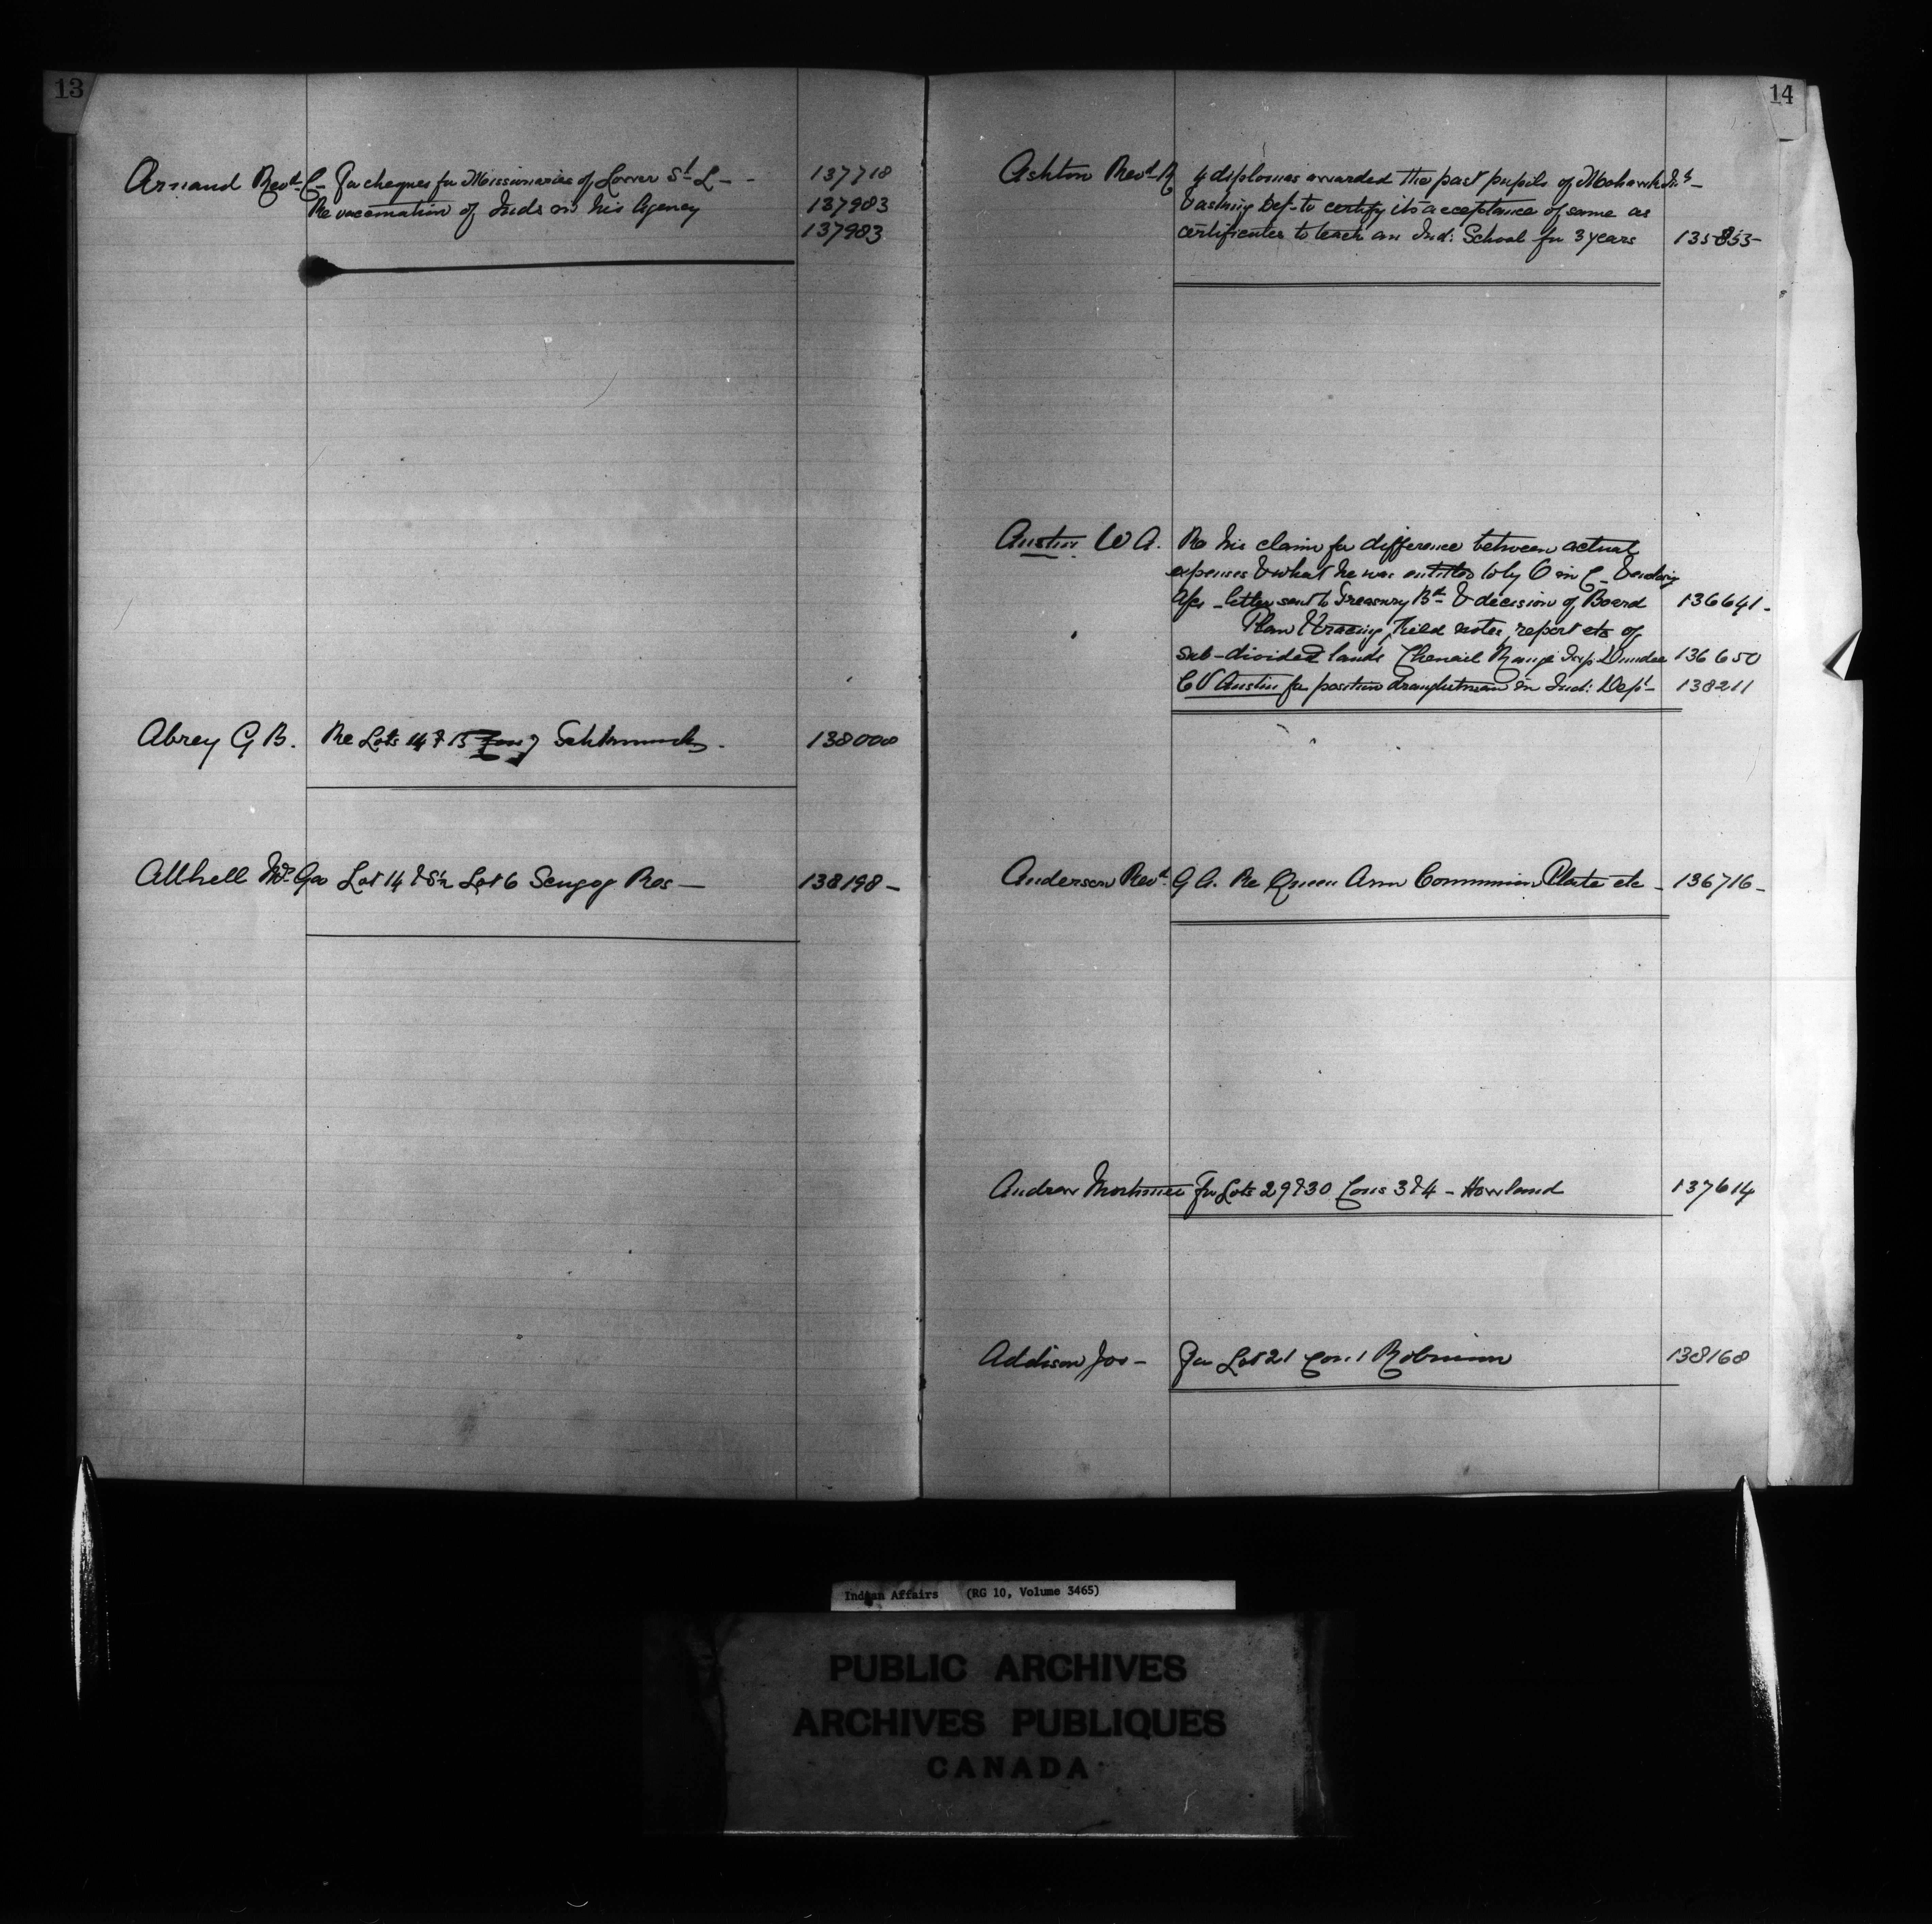 13
Arnaud Revd. C- For cheques for Missionaries of Lower St. L - - 137718
Re vaccination of Inds on his Agency 137983
137983
Abrey G B. Re Lots 14 & 15 138000
Allbell Geo Lot 14 & S½ Lot 6 Scugog Res - 138198 -
14
Ashton Revd. R 4 diplomas awarded the past pupils of Mohawk Inst -
& asking Dep- to certify its acceptance of same as
certificates to teach an Ind: School for 3 years 135853 -
Austin W A. Re his claim for difference between actual
expenses & what he was entitled to by O in C - & enclosing
letter sent to Treasury Bd- & decision of Board 136641 -
Plan & tracing, Field notes, report etc of
sub-divided lands Chenail Range Twp Dundee 136650
C V Austin for position draughtsman in Ind: Dept - 138211
Anderson Revd. G A. Re Queen Ann Communion Plate etc - 136716 -
Andrew Mortimer For Lots 29 & 30 Cons 3 & 4 - Howland 137614
Addison Jos - For Lot 21 Con. 1 Robinson 138168
Indian Affairs (RG 10, Volume 3465)
PUBLIC ARCHIVES
ARCHIVES PUBLIQUES
CANADA